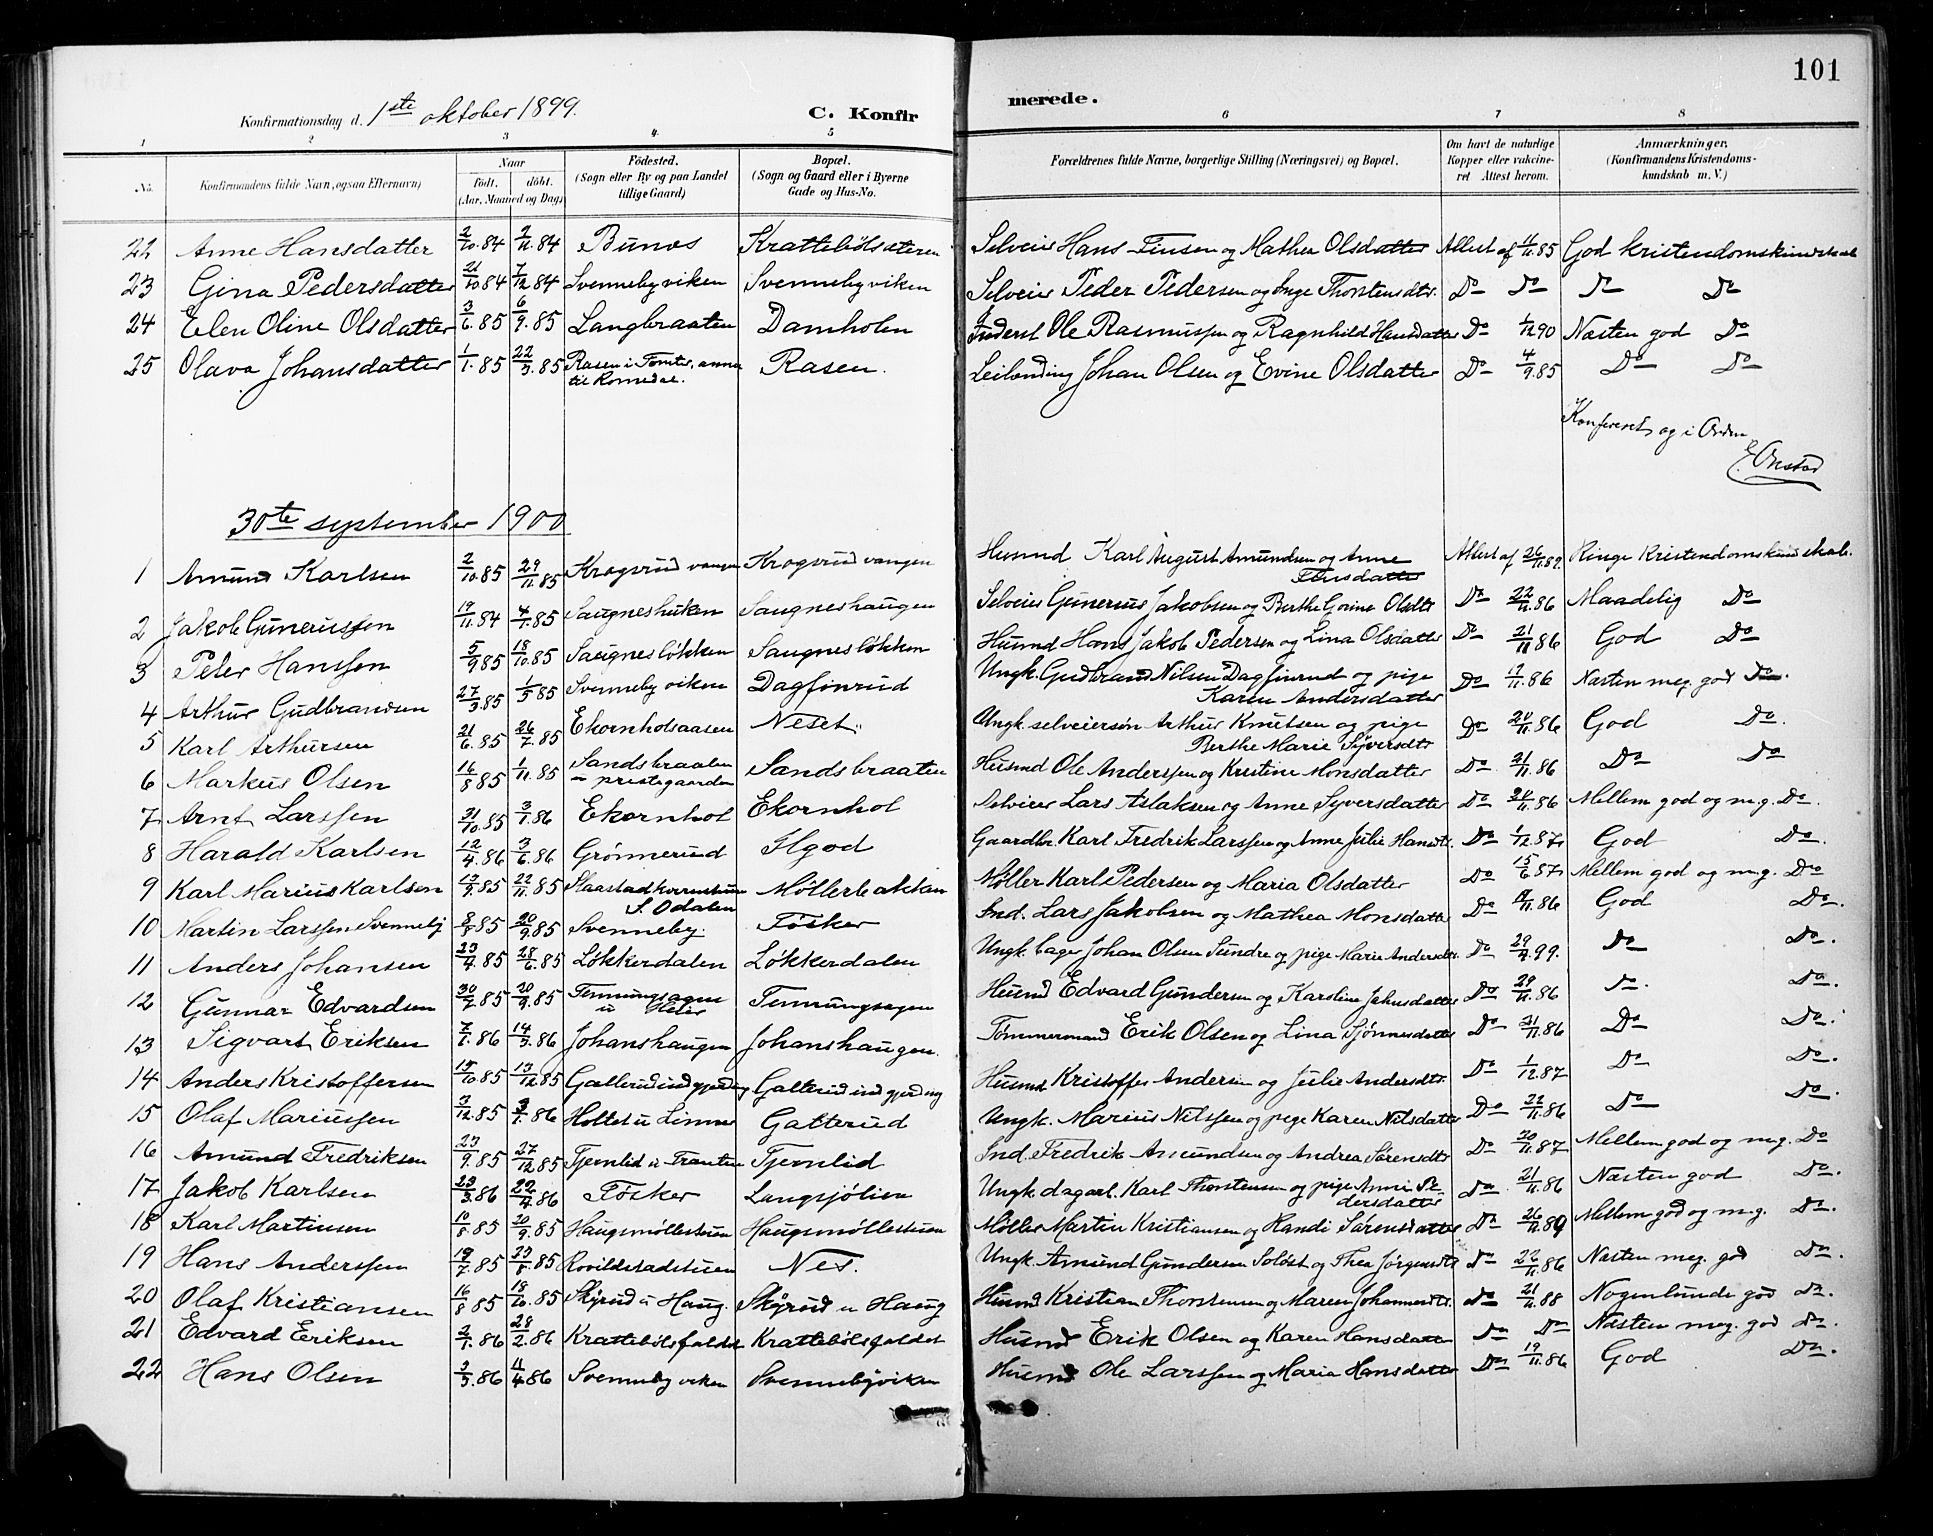 101
Konfirmationsdag d. 1ste oktober 1899.
C. Konfirmerede.
1 2 3 4 5 6 7 8
No.
Konfirmandens fulde Navn, ogsaa Efternavn)
Naar
födt. döbt.
(Aar, Maaned og Dag)
Födested.
(Sogn eller By og paa Landet tillige Gaard)
Bopæl.
(Sogn og Gaard eller i Byerne Gade og Hus-No.
Forældrenes fulde Navne, borgerlige Stilling (Næringsvei) og Bopæl.
Om havt de naturlige Kopper eller vakcineret Attest herom.
Anmærkninger.
(Konfirmandens Kristendomskundskab m. V.)
22 Anne Hansdatter 2/10 84 2/11 84 Bunes Krattebölsæteren Selveier Hans Finsen og Mathea Olsdatter Attest af 4/11 85 God kristendomskundskab
23 Gina Pedersdatter 21/10 84 7/12 84 Svennebyviken Svennebyviken Selveier Peder Pedersen og Inge Thorstensdtr. Do Do Do Do
24 Elen Oline Olsdatter 3/6 85 6/9 85 Langbraaten Damholen Inderst Ole Rasmussen og Ragnhild Hansdatter Do 1/12 90 Næsten god Do
25 Olava Johansdatter 1/1 85 22/3 85 Rasen i Tomter, annex til Romedal. Rasen. Leilending Johan Olsen og Evine Olsdatter Do 4/9 85 Do Do
Konfereret og i Orden
E. Onstad
30te september 1900
1 Amund Karlsen 2/10 85 29/11 85 Krogsrud vangen Krogsrud vangen Husmd Karl August Amundsen og Anne Finsdatter Attest af 26/11 89. Ringe Kristendomskundskab.
2 Jakob Gunerussen 19/11 84 4/1 85 Saugneshuken Saugneshaugen Selveier Gunerius Jakobsen og Berthe Gorine Olsdtr Do 22/11 86 Maadelig Do
3 Peter Hanssen 5/9 85 18/10 85 Saugnesløkken Saugnesløkken Husmd Hans Jakob Pedersen og Lina Olsdatter Do 21/11 86 God Do
4 Arthur Gudbrandsen 27/3 85 1/5 85 Svenneby viken Dagfinrud Ungk. Gudbrand Nilsen Dagfinrud og pige Karen Andersdatter Do 17/11 86 Næsten meg. god Do.
5 Karl Arthursen 21/6 85 26/7 85 Ekornholsaasen Neset Ungk selveiersøn Arthur Knutsen og pige Berthe Marie Syversdtr Do 20/11 86 God Do.
6 Markus Olsen 16/8 85 1/11 85 Sandsbraaten u præstegaarden Sandsbraaten Husmd Ole Anderssen og Kristine Monsdatter Do 21/11 86 Do Do
7 Arnt Larssen 31/10 85 3/1 86 Ekornhol Ekornhol Selveier Lars Aslaksen og Anne Syversdatter Do 20/11 86 Mellem god og mg. Do.
8 Harald Karlsen 12/4 86 3/6 86 Grönnerud Gaardbr. Karl Fredrik Larssen og Anne Julie Hansdtr Do 1/12 87 God Do.
9 Karl Marius Karlsen 13/9 85 22/11 85 S. Odalen Möllerbakken Møller Karl Pedersen og Maria Olsdatter Do 15/6 87 Mellem god og mg. Do
10 Martin Larssen Svenneby 8/8 85 20/9 85 Svenneby. Føsker Ind. Lars Jakobsen og Mathea Monsdatter Do 11/11 86 God Do.
11 Anders Johansen 23/4 85 28/6 85 Løkkerdalen Løkkerdalen Ungk. bager Johan Olsen Sundre og pige Marie Andersdtr. Do 29/9 99. Do Do.
12 Gunnar Edvardsen 30/7 85 20/9 85 Tennungsagen Tennungsagen Husmd Edvard Gundersen og Karoline Jahnsdatter Do 20/11 86 Do. Do.
13 Sigvart Eriksen 7/1 86 14/3 86 Johanshaugen Johanshaugen. Tømmermand Erik Olsen og Lina Sjönnesdatter Do 21/11 86 Do Do.
14 Anders Kristoffersen 15/10 85 13/12 85 Gatterud indgjerding Gatterud indgjerding Husmd Kristoffer Andersen og Julie Andersdtr. Do 1/12 87 Do Do.
15 Olaf Mariussen 3/12 85 3/1 86 Holtet u Linner Gatterud Ungk. Marius Nilssen og pige Karen Nilsdatter Do 22/11 86 Do Do.
16 Amund Fredriksen 23/9 85 27/12 85 Tjernlid u Tranten Tjernlid Ind. Fredrik Amundsen og Andrea Sørensdtr Do 20/11 87 Mellem god og mg. Do
17 Jakob Karlsen 23/3 86 22/4 86 Føsker Langsjölien Ungk. dagarb. Karl Thorstensen og pige Anne Pedersdatter Do 21/11 86 Næsten god Do.
18 Karl Martinsen 10/8 85 20/9 85 Haugsmøllestuen Haugsmøllestuen Møller Martin Kristiansen og Randi Sørensdatter Do 26/11 89 Mellem god og mg. Do.
19 Hans Anderssen 19/7 85 23/8 85 Rovildstadstuen Nes. Ungk. Amund Gundersen Soløst og Thea Jörgensdtr Do 22/11 86 Næsten meg. god Do.
20 Olaf Kristiansen 16/8 85 18/10 85 Skyrud u Haug. Skyrud u Haug Husmd Kristian Thorstensen og Maren Johannesdtr. Do 21/11 88 Nogenlunde god Do.
21 Edvard Eriksen 2/1 86 28/2 86 Krattebölsfaldet Krattebölsfaldet Husmd Erik Olsen og Karen Hansdatter Do Do Næsten meg. god Do.
22 Hans Olsen 3/3 86 11/4 86 Svenneby viken Svennebyviken Husmd Ole Larssen og Maria Hansdatter Do 19/11 86 God Do.